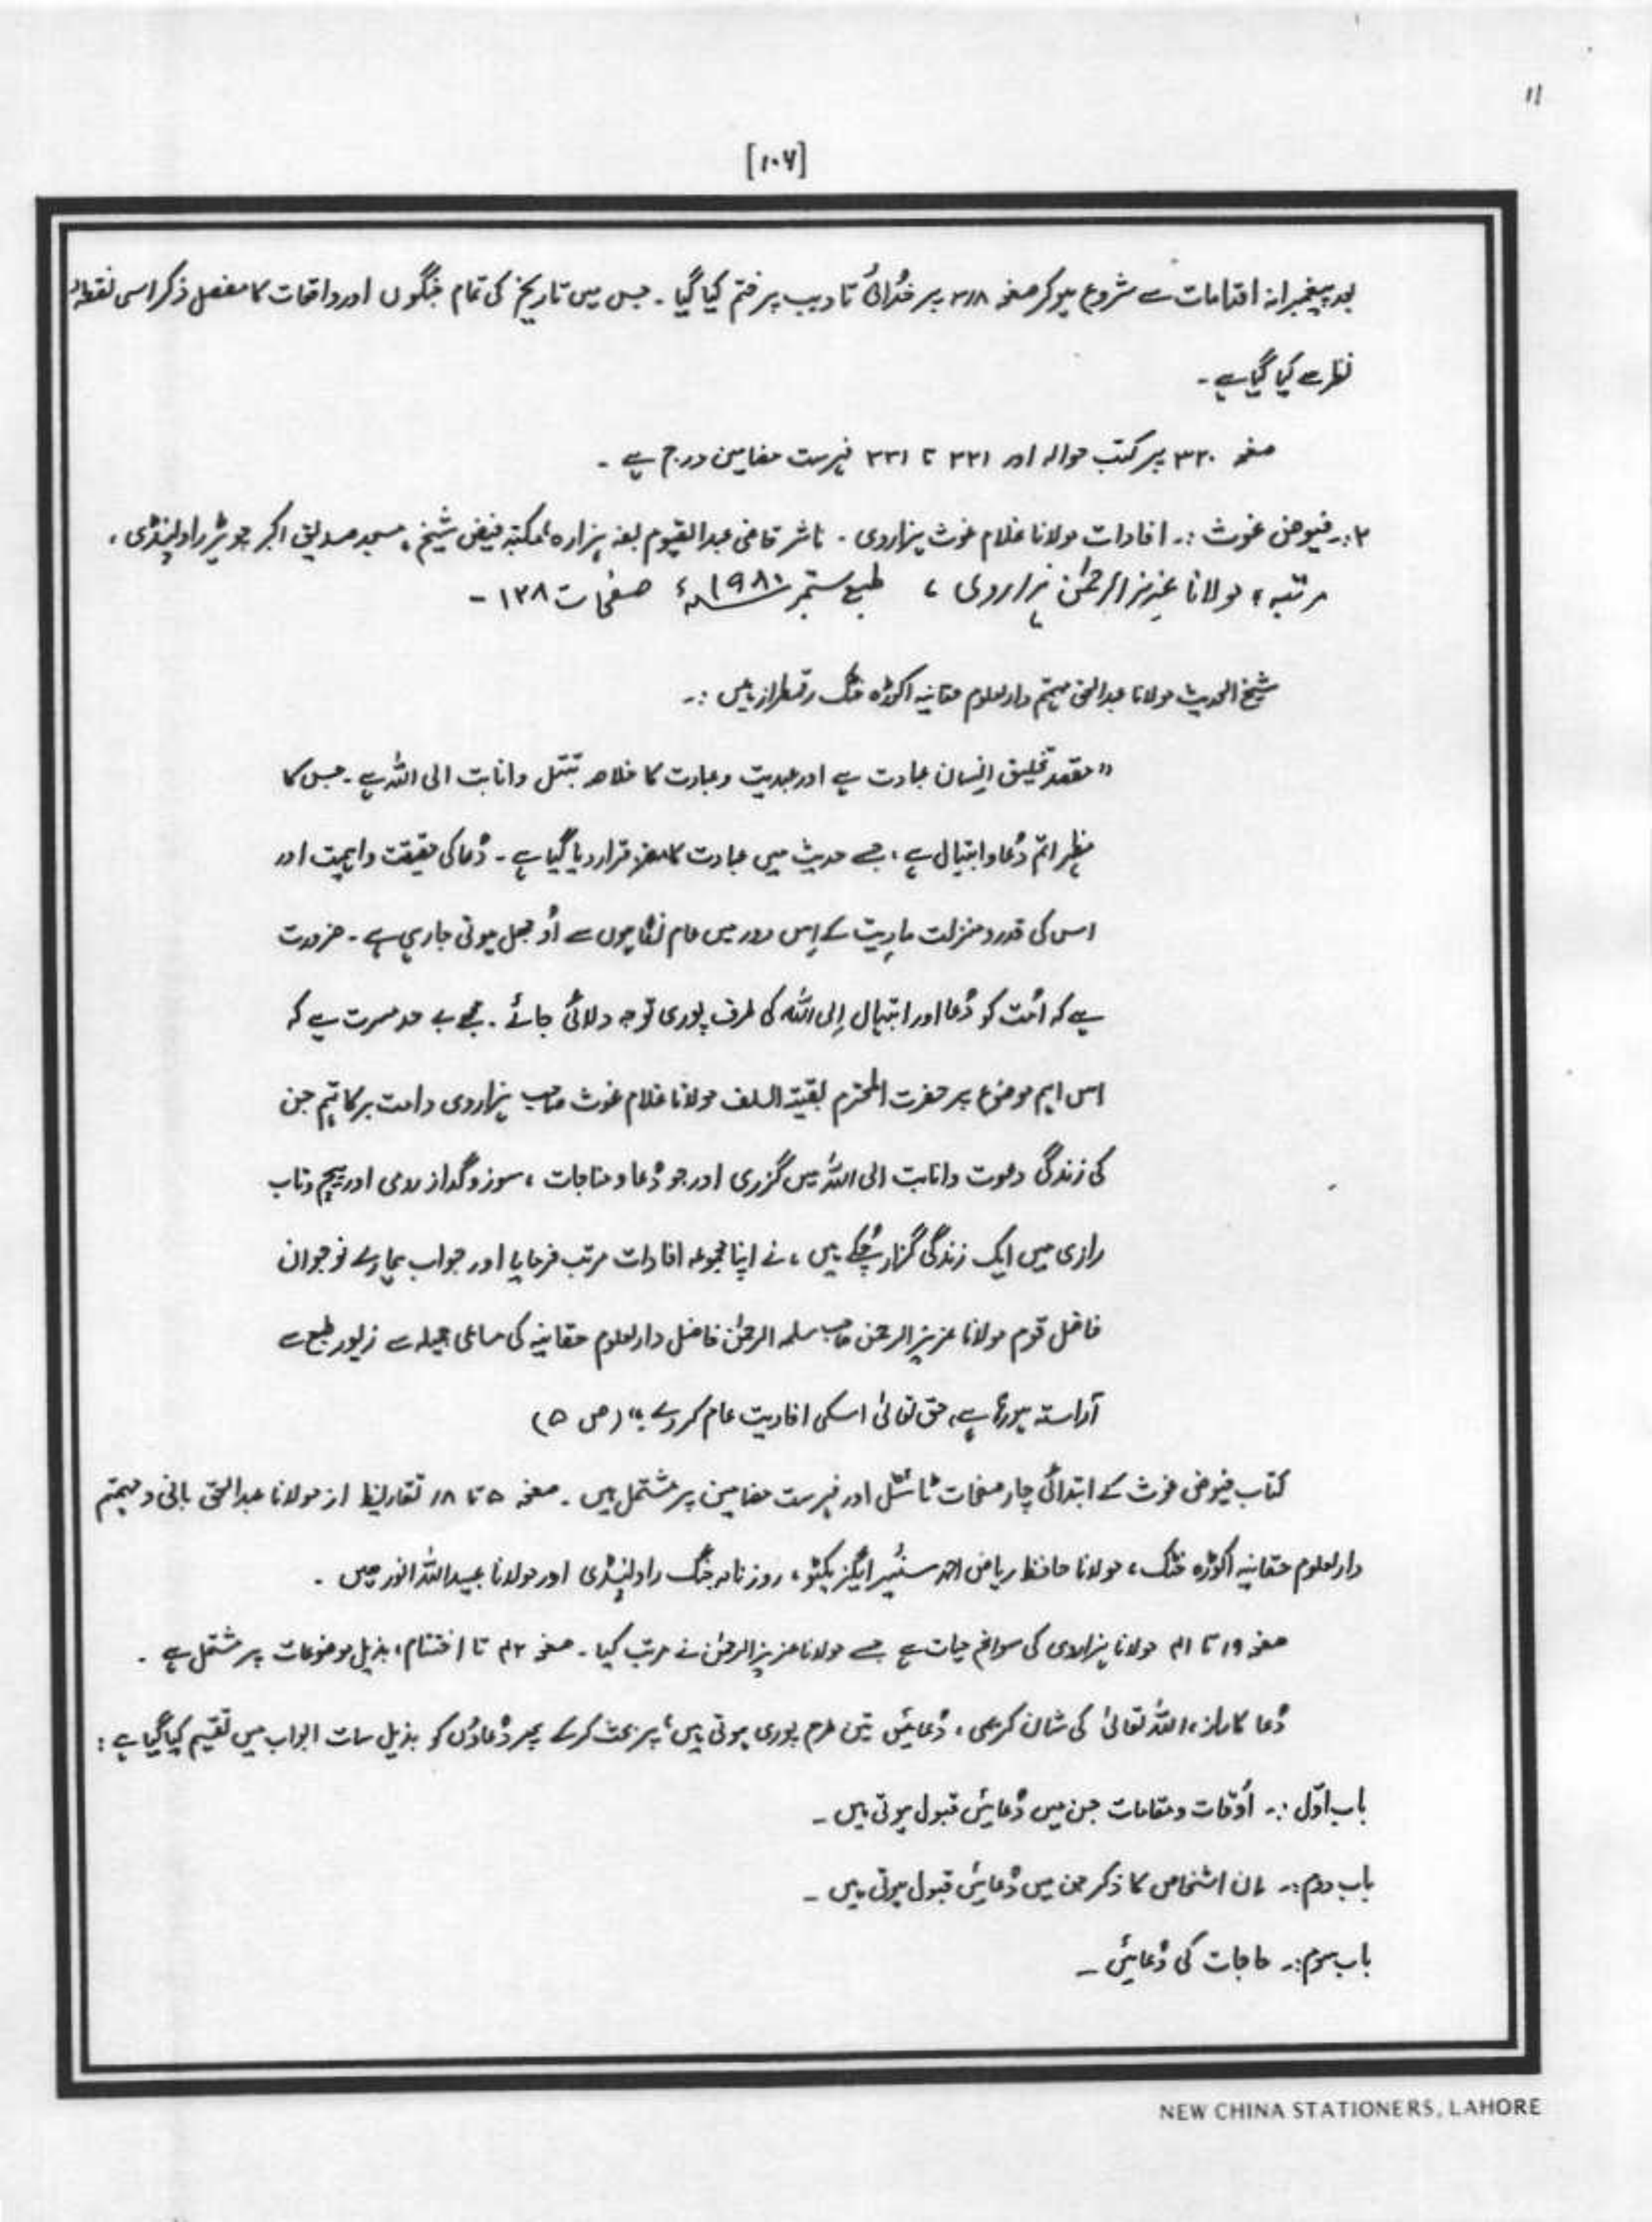 11
[۱۰۶]
بعد پیغمبرانہ اقدامات سے شروع ہو کر صفحہ ۳۱۸ پر خُدائی تادیب پر ختم کیا گیا ۔ جس میں تاریخ کی تمام جنگوں اور واقعات کا مفصل ذکر اسی نقطۂ
نظر سے کیا گیا ہے ۔
صفحہ ۳۲۰ پر کتب حوالہ اور ۳۲۱ تا ۳۳۱ فہرست مضامین درج ہے ۔
۲:۔ فیوض غوث :۔ افادات مولانا غلام غوث ہزاروی ۔ ناشر قاضی عبدالقیوم بفہ ہزارہ، مکتبہ فیض شیخ، مسجد صدیق اکبر چوہڑ راولپنڈی،
مرتبہ؛ مولانا عزیز الرحمٰن ہزاروی، طبع ستمبر ۱۹۸۰ء صفحات ۱۲۸ –
شیخ الحدیث مولانا عبدالحق مہتمم دارلعلوم حقانیہ اکوڑہ خٹک رقمطراز ہیں :۔
"مقصد تخلیق انسان عبادت ہے اور عبدیت و عبادت کا خلاصہ تبتّل و انابت الی اللہ ہے ۔ جس کا
مظہر اتم دُعا و ابتہال ہے، جسے حدیث میں عبادت کا مغز قرار دیا گیا ہے ۔ دُعا کی حقیقت و اہمیت اور
اس کی قدر و منزلت مادیت کے اِس دور میں عام نگاہوں سے اُوجھل ہوتی جا رہی ہے ۔ ضرورت
ہے کہ اُمت کو دُعا اور ابتہال اِلی اللہ کی طرف پوری توجہ دلائی جائے ۔ مجھے بے حد مسرت ہے کہ
اس اہم موضوع پر حضرت المحترم بقیۃ السلف مولانا غلام غوث صاحب ہزاروی دامت برکاتہم جن
کی زندگی دعوت و انابت الی اللہ میں گزری اور جو دُعا و مناجات، سوز و گداز رومی اور پیچ و تاب
رازی میں ایک زندگی گزار چُکے ہیں، نے اپنا مجموعہ افادات مرتب فرمایا اور جو اب ہمارے نوجوان
فاضل قوم مولانا عزیز الرحمٰن صاحب سلمہ الرحمٰن فاضل دارلعلوم حقانیہ کی مساعی جمیلہ سے زیور طبع سے
آراستہ ہو رہا ہے، حق تعالیٰ اسکی افادیت عام کر دے ؛" (ص ۵)
کتاب فیوض غوث کے ابتدائی چار صفحات ٹائٹل اور فہرست مضامین پر مشتمل ہیں ۔ صفحہ ۵ تا ۱۸ تقاریظ از مولانا عبدالحق بانی و مہتمم
دارلعلوم حقانیہ اکوڑہ خٹک، مولانا حافظ ریاض احمد سنئیر ایگزیکٹو، روزنامہ جنگ راولپنڈی اور مولانا عبیداللہ انور ہیں ۔
صفحہ ۱۹ تا ۴۱ مولانا ہزاروی کی سوانح حیات ہے جسے مولانا عزیز الرحمٰن نے مرتب کیا ۔ صفحہ ۴۲ تا اختتام، بذیل موضوعات پر مشتمل ہے ۔
دُعا کا راز، اللہ تعالیٰ کی شان کریمی، دُعائیں تین طرح پوری ہوتی ہیں؛ پر بحث کرکے پھر دُعاؤں کو بذیل سات ابواب میں تقسیم کیا گیا ہے :
باب اوّل :۔ اوقات و مقامات جن میں دُعائیں قبول ہوتی ہیں ۔
باب دوم :۔ ان اشخاص کا ذکر جن میں دُعائیں قبول ہوتی ہیں ۔
باب سوم :۔ حاجات کی دُعائیں ۔
NEW CHINA STATIONERS, LAHORE